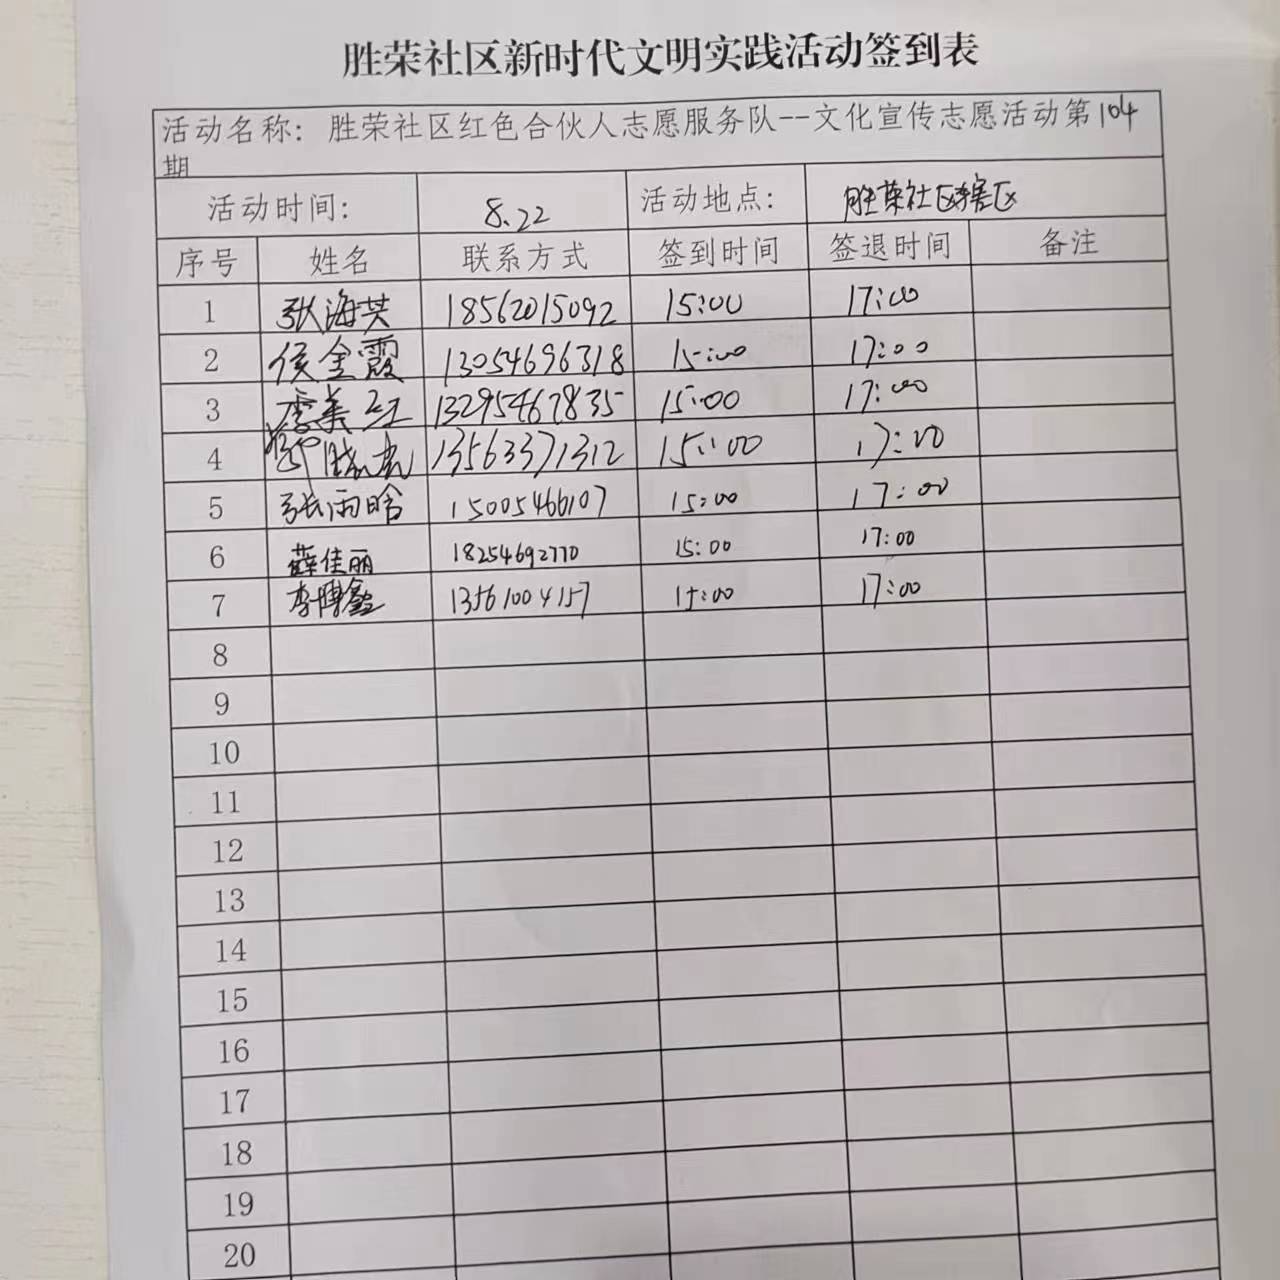 胜荣社区新时代文明实践活动签到表
活动名称：胜荣社区红色合伙人志愿服务队--文化宣传志愿活动第104
期
活动时间： 8.22 活动地点： 胜荣社区辖区
序号 姓名 联系方式 签到时间 签退时间 备注
1 张海英 18562015092 15:00 17:00
2 侯金霞 13054696318 15:00 17:00
3 李美红 13295467835 15:00 17:00
4 13563371312 15:00 17:00
5 张雨晗 15005466107 15:00 17:00
6 薛佳丽 18254692770 15:00 17:00
7 李博鑫 13561004157 15:00 17:00
8
9
10
11
12
13
14
15
16
17
18
19
20